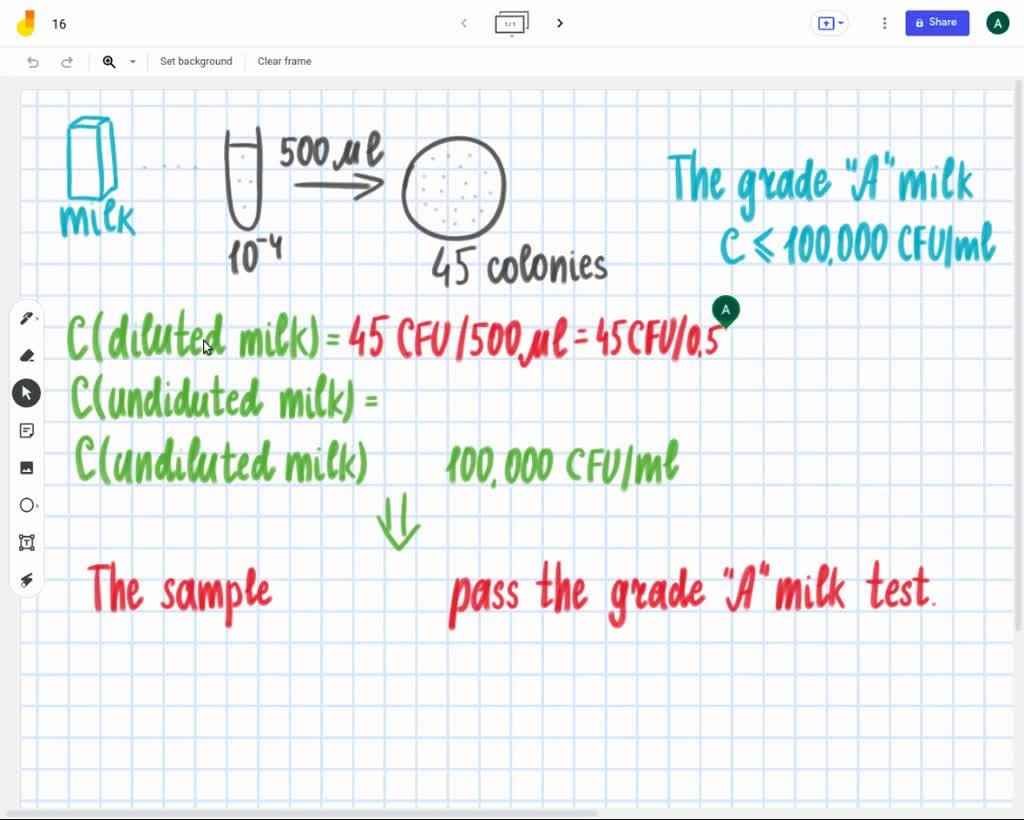 16
1/1
Share
A
Set background
Clear frame
500 μl
The grade "A" milk
milk
10⁻⁴
C ⩽ 100,000 CFU/ml
45 colonies
A
C(diluted milk) = 45 CFU/500 μl = 45 CFU/0.5
C(undiduted milk) =
C(undiluted milk) 100,000 CFU/ml
The sample pass the grade "A" milk test.